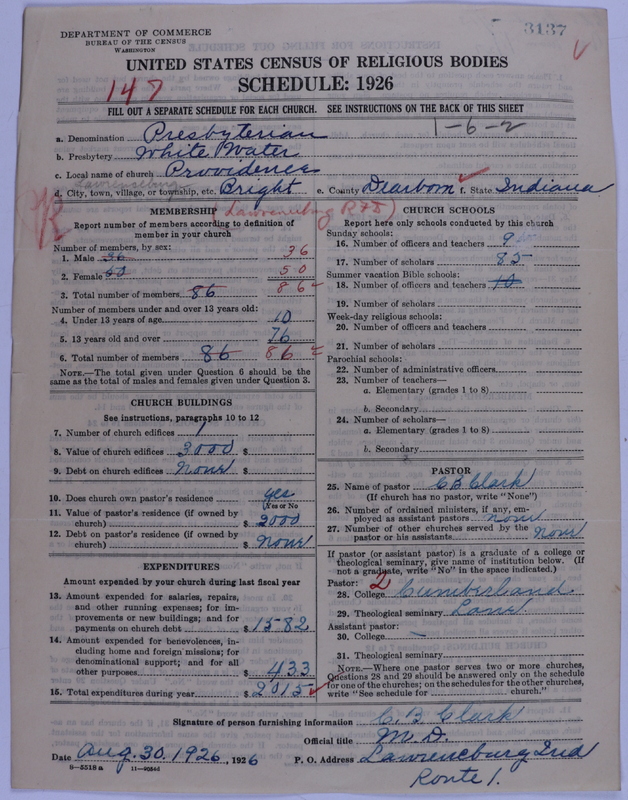 3137
DEPARTMENT OF COMMERCE
BUREAU OF THE CENSUS
WASHINGTON
UNITED STATES CENSUS OF RELIGIOUS BODIES
SCHEDULE: 1926
147
FILL OUT A SEPARATE SCHEDULE FOR EACH CHURCH. SEE INSTRUCTIONS ON THE BACK OF THIS SHEET
1-6-2
a. Denomination Presbyterian
b. Presbytery White Water
c. Local name of church Providence
Lawrenceburg
d. City, town, village, or township, etc. Bright e. County Dearborn f. State Indiana
MEMBERSHIP Lawrenceburg
Report number of members according to definition of member in your church
Number of members, by sex:
1. Male 36 36
2. Female 50 50
3. Total number of members 86 86
Number of members under and over 13 years old:
4. Under 13 years of age 10
5. 13 years old and over 76
6. Total number of members 86 86
NOTE.—The total given under Question 6 should be the same as the total of males and females given under Question 3.
CHURCH BUILDINGS
See instructions, paragraphs 10 to 12
7. Number of church edifices 1
8. Value of church edifices 3000 $
9. Debt on church edifices None $
10. Does church own pastor's residence yes
(Yes or No)
11. Value of pastor's residence (if owned by church) $ 2000
12. Debt on pastor's residence (if owned by church) $ None
EXPENDITURES
Amount expended by your church during last fiscal year
13. Amount expended for salaries, repairs, and other running expenses; for improvements or new buildings; and for payments on church debt $ 1582
14. Amount expended for benevolences, including home and foreign missions; for denominational support; and for all other purposes $ 433
15. Total expenditures during year $ 2015
CHURCH SCHOOLS
Report here only schools conducted by this church
Sunday schools:
16. Number of officers and teachers 9
17. Number of scholars 85
Summer vacation Bible schools:
18. Number of officers and teachers 10
19. Number of scholars
Week-day religious schools:
20. Number of officers and teachers
21. Number of scholars
Parochial schools:
22. Number of administrative officers
23. Number of teachers—
a. Elementary (grades 1 to 8)
b. Secondary
24. Number of scholars—
a. Elementary (grades 1 to 8)
b. Secondary
PASTOR
25. Name of pastor C B Clark
(If church has no pastor, write "None")
26. Number of ordained ministers, if any, employed as assistant pastors None
27. Number of other churches served by the pastor or his assistants None
If pastor (or assistant pastor) is a graduate of a college or theological seminary, give name of institution below. (If not a graduate, write "No" in the space indicated.)
Pastor:
28. College Cumberland
29. Theological seminary Lane
Assistant pastor:
30. College —
31. Theological seminary
NOTE.—Where one pastor serves two or more churches, Questions 28 and 29 should be answered only on the schedule for one of the churches; on the schedules for the other churches, write "See schedule for church."
Signature of person furnishing information C. B. Clark
Official title M. D.
Date Aug. 30, 1926, 1926 P. O. Address Lawrenceburg Ind
Route 1.